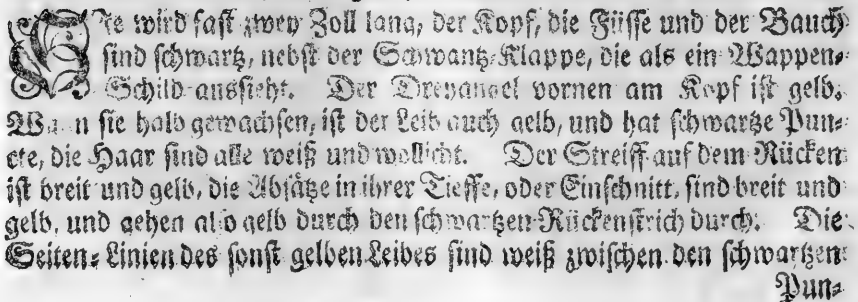 Sie wird fast zwey Zoll lang, der Kopf, die Füsse und der Bauch
sind schwartz, nebst der Schwantz-Klappe, die als ein Wappen-
Schild aussieht. Der Dreyangel vornen am Kopf ist gelb.
Wann sie halb gewachsen, ist der Leib auch gelb, und hat schwartze Pun-
cte, die Haar sind alle weiß und wollicht. Der Streiff auf dem Rücken
ist breit und gelb, die Absätze in ihrer Tieffe, oder Einschnitt, sind breit und
gelb, und gehen also gelb durch den schwartzen Rückenstrich durch. Die
Seiten-Linien des sonst gelben Leibes sind weiß zwischen den schwartzen
Pun-